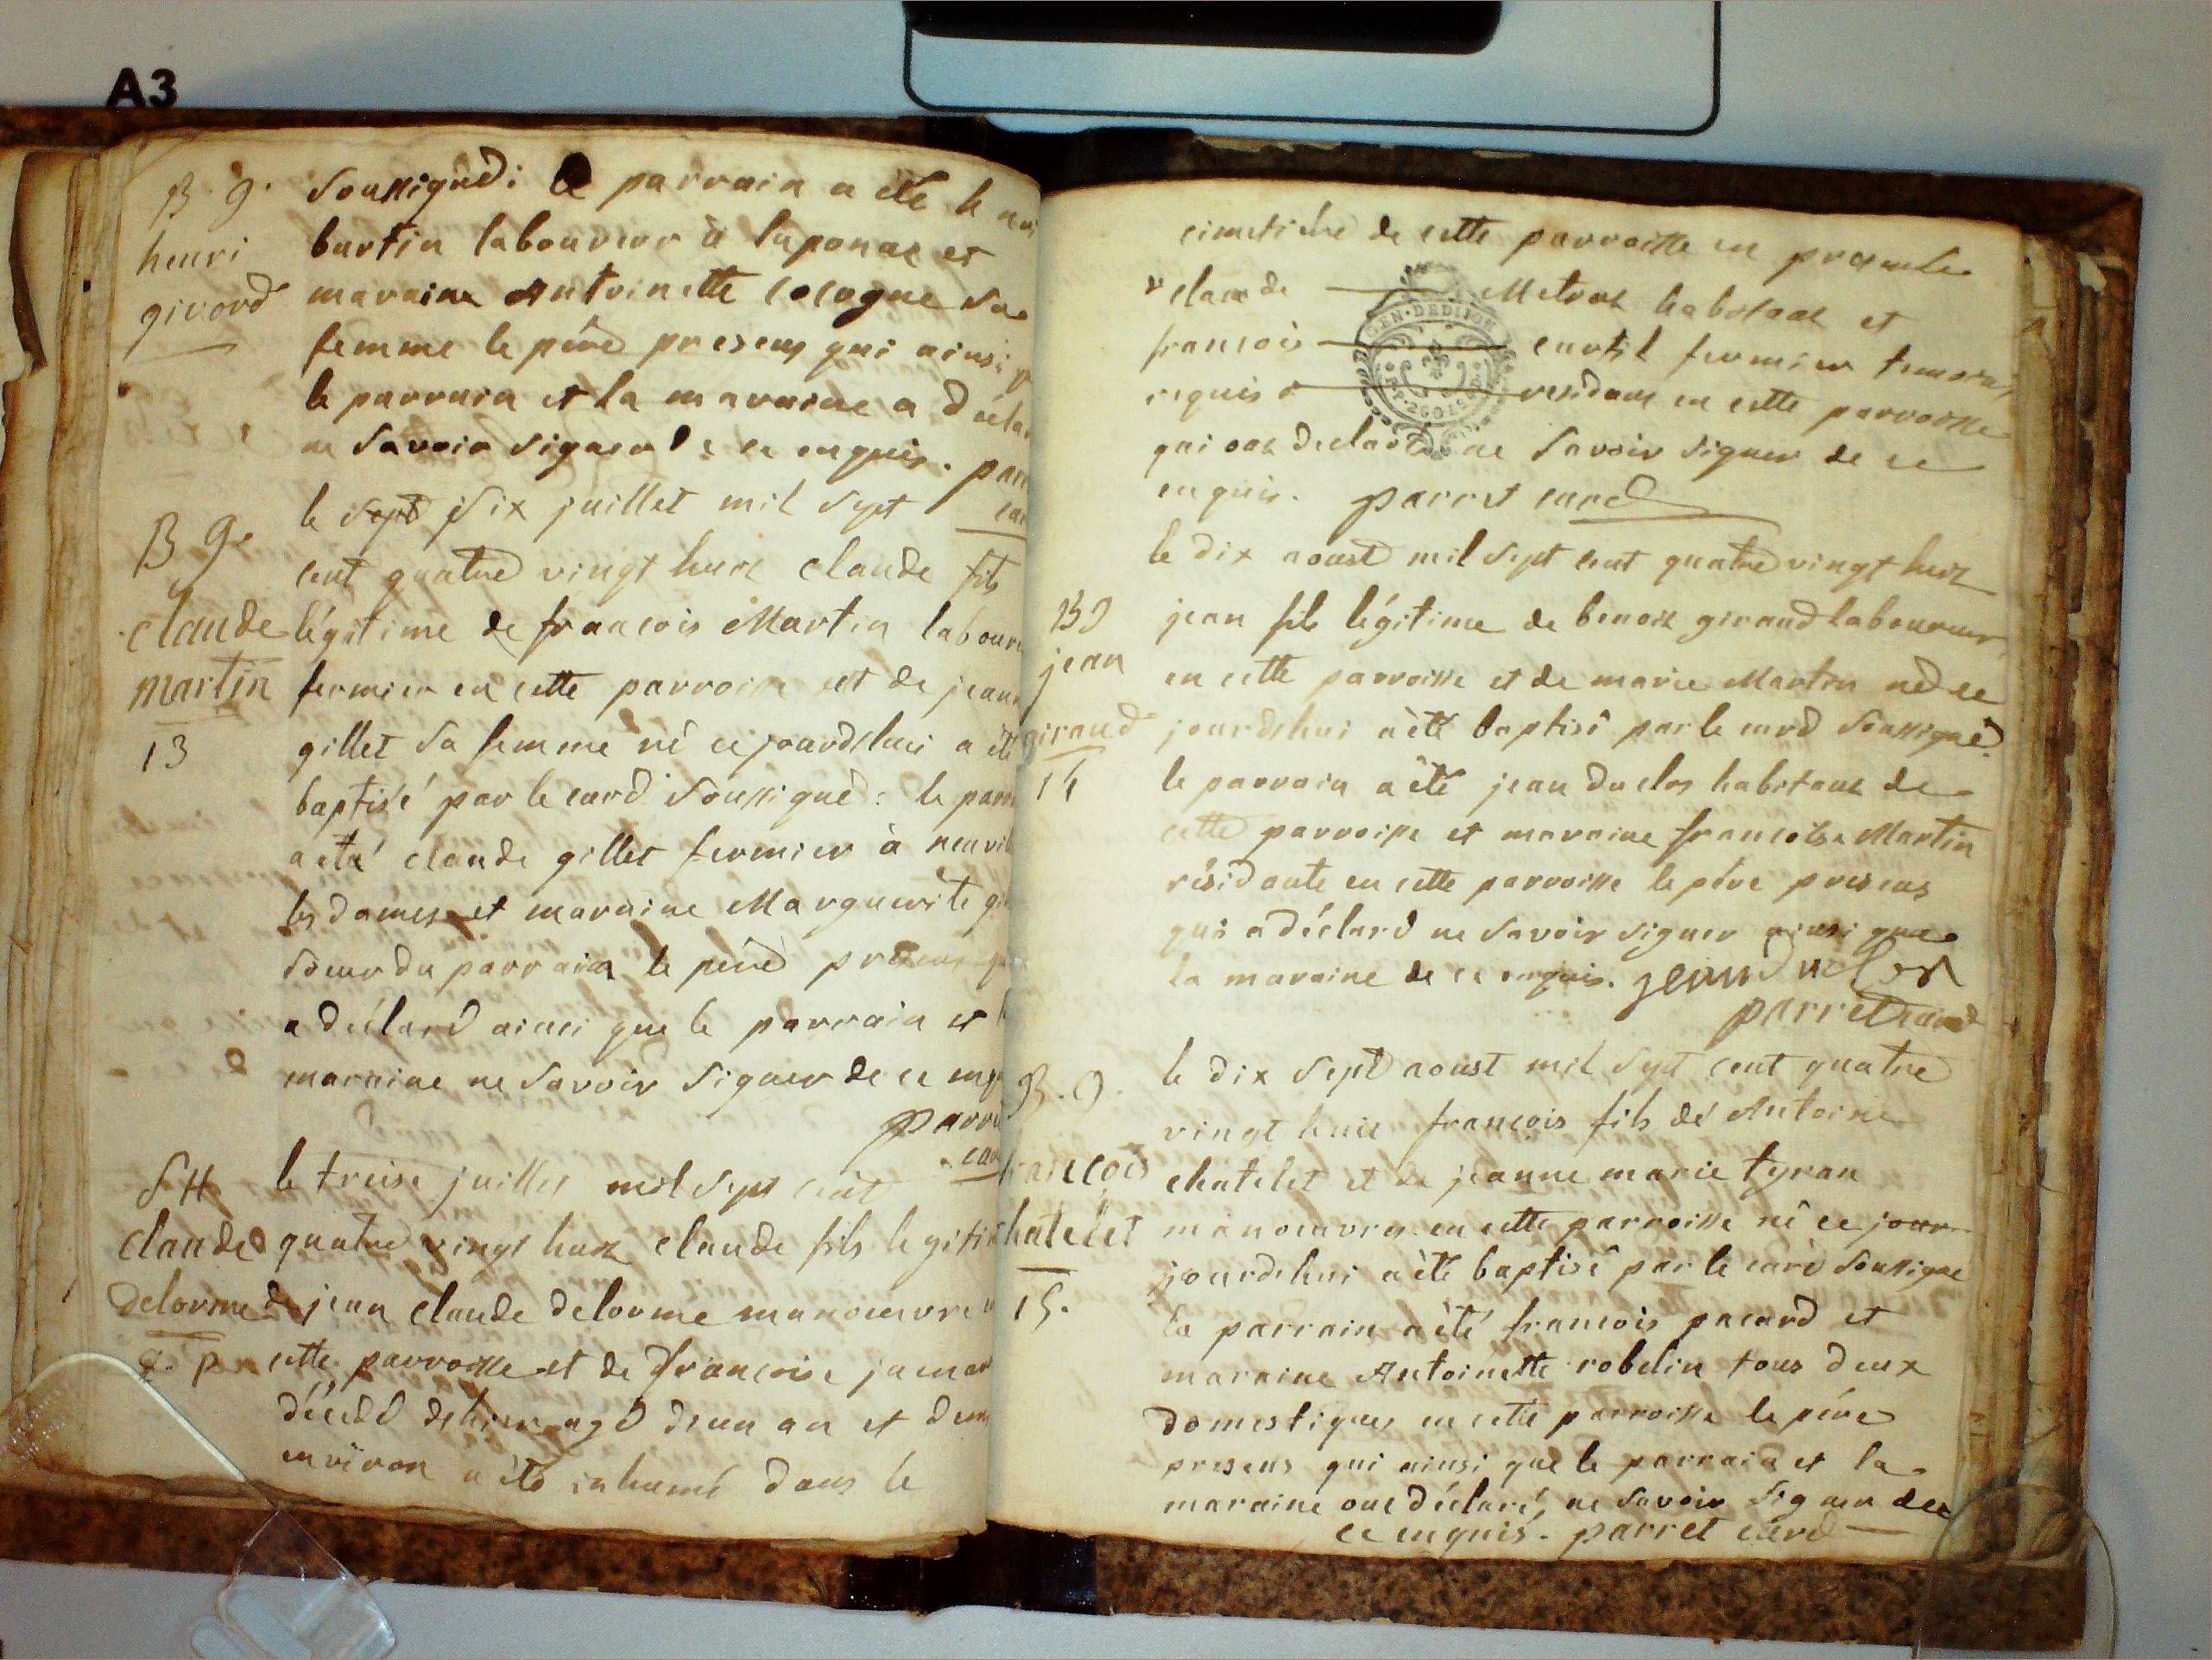 A3
B. g.
henri
givord
soussigné : le parrain a été
burtin laboureur à laponas et
maraine Antoinette cocogne sa
femme le père present qui ainsi
le parrain et la maraine a déclar
ne savoir signer de ce enquis. par
cur
B g.
claude
martin
13
le sept six juillet mil sept
cent quatre vingt huit claude fils
légitime de francois Martin labour
fermier en cette parroisse et de jeann
gillet sa femme né ce jourdhui a été
baptisé par le curé soussigné : le parr
a eté claude gillet fermier à neuvil
les dames et maraine Marguerite gi
soeur du parrain le père present
a déclaré ainsi que le parrain et l
maraine ne savoir signer de ce enq
parre
cur
SH
claude
delorme
le treise juillet mil sept cent
quatre vingt huit claude fils legiti
de jean claude delorme manoeuvre
cette parroisse et de francoise
décédé dehier agé dun an et dem
environ a été inhumé dans le
cimetière de cette parroisse en presence
claude Metras habitant et
GEN. DE DIJON
francois curtil fermier temoins
requis residans en cette parroisse
qui ont declaré ne savoir signer de ce
enquis. parret curé
B g
jean
giraud
14
le dix aoust mil sept cent quatre vingt huit
jean fils légitime de benoit giraud laboureur
en cette parroisse et de marie Martin né ce
jourdhui a été baptisé par le curé soussigné
le parrain a été jean duclos habitant de
cette parroisse et maraine francoise Martin
résidante en cette parroisse le père present
qui a déclaré ne savoir signer ainsi que
la maraine de ce enquis. jean duclos
parret curé
B. g.
francois
chatelet
15.
le dix sept aoust mil sept cent quatre
vingt huit francois fils de Antoine
chatelet et de jeanne marie tyran
manoeuvres en cette parroisse né ce jour
jourdhui a été baptisé par le curé soussigné
la parrain a été francois pacard et
maraine Antoinette robelin tous deux
domestiques en cette parroisse le père
present qui ainsi que le parrain et la
maraine ont déclaré, ne savoir signer de
ce enquis. parret curé